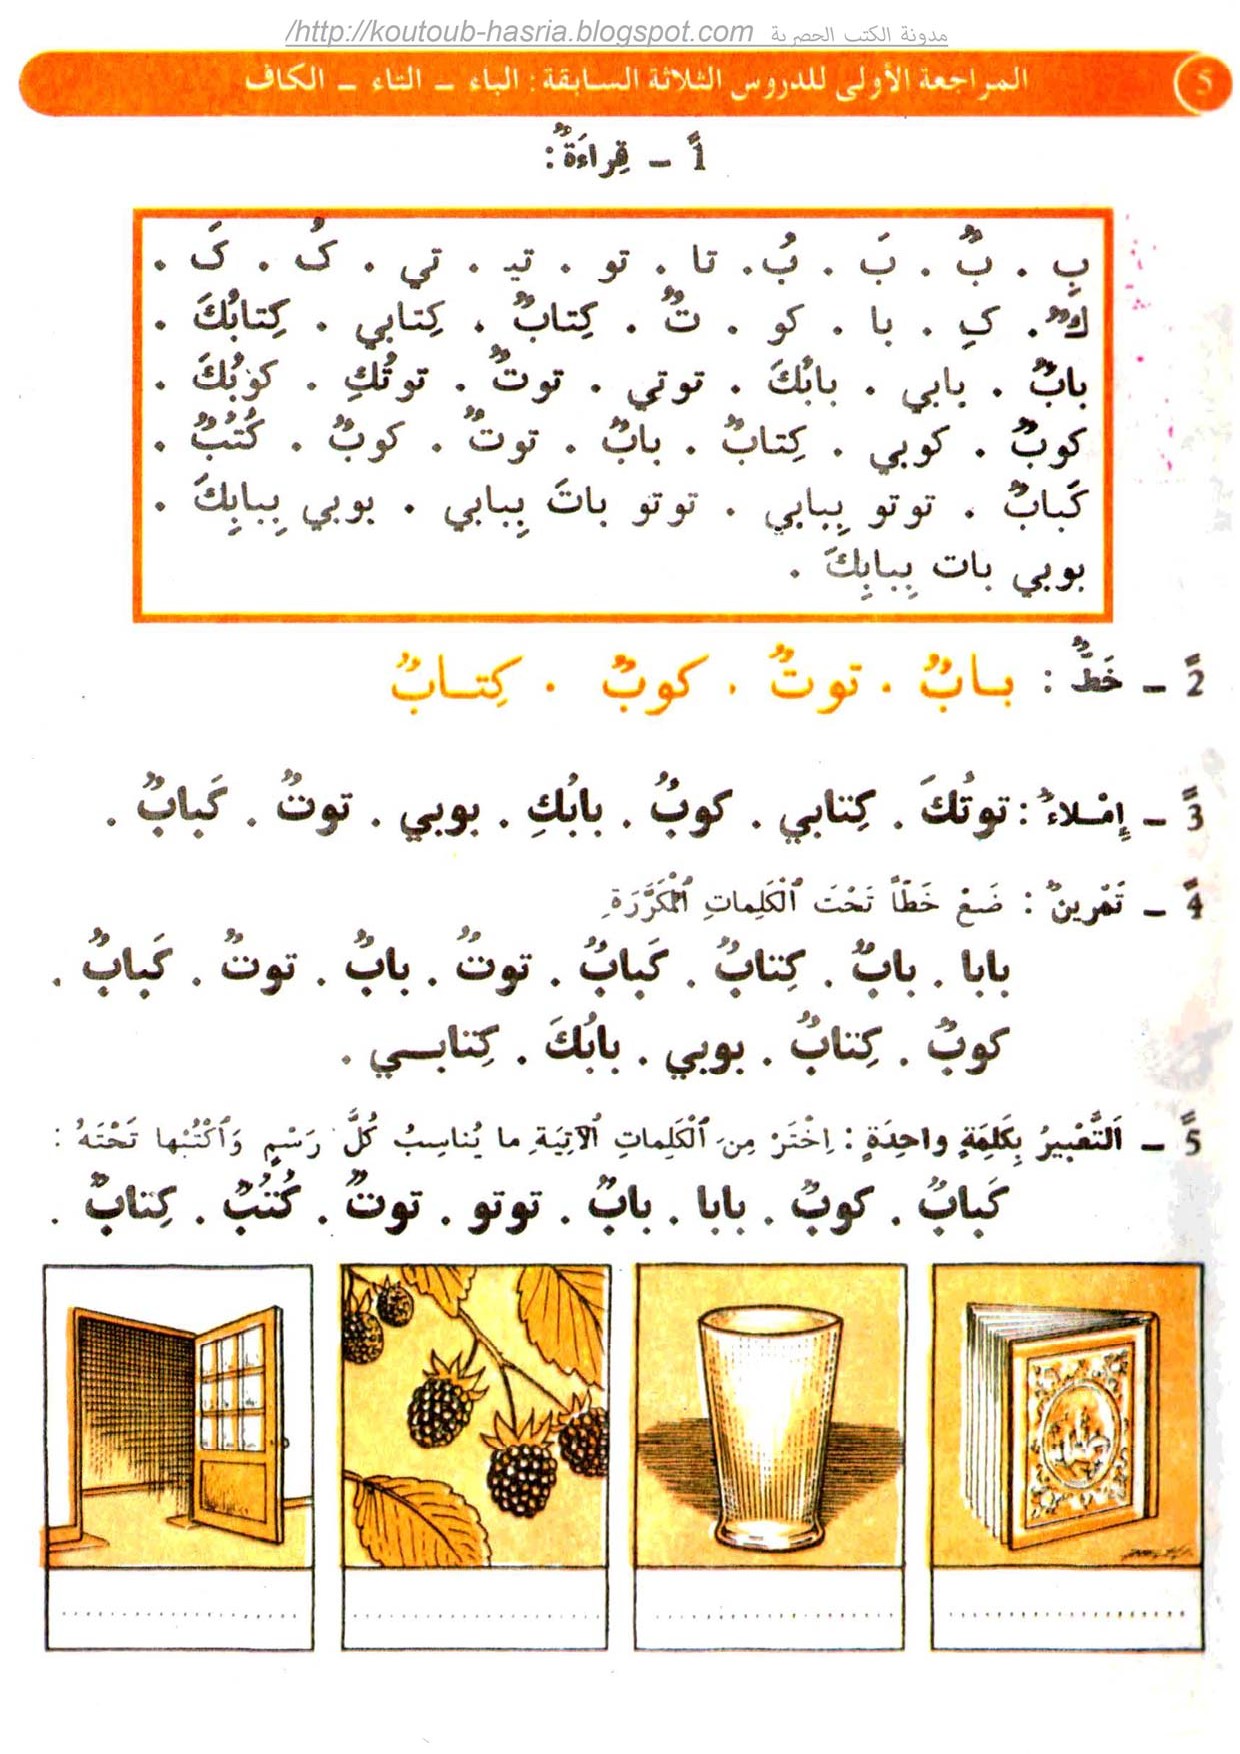 مدونة الكتب الحصرية http://koutoub-hasria.blogspot.com/
5 المراجعة الأولى للدروس الثلاثة السابقة : الباء ـ التاء ـ الكاف
1ً ـ قِراءَةٌ :
بِ . بٌ . بَ . بُ . تا . تو . تِ . تي . كُ . كَ .
كٌ . كِ . با . كو . تٌ . كِتابٌ . كِتابي . كِتابُكَ .
بابٌ . بابي . بابُكَ . توتي . توتٌ . توتُكِ . كوبُكَ .
كوبٌ . كوبي . كِتابٌ . بابٌ . توتٌ . كوبٌ . كُتُبٌ .
كَبابٌ . توتو بِبابي . توتو باتَ بِبابي . بوبي بِبابِكَ .
بوبي بات بِبابِكَ .
2ً ـ خَطٌّ : بابٌ . توتٌ . كوبٌ . كِتابٌ
3ً ـ إِمْلاءٌ : توتُكَ . كِتابي . كوبُ . بابُكِ . بوبي . توتٌ . كَبابٌ .
4ً ـ تَمْرينٌ : ضَعْ خَطّاً تَحْتَ ٱلْكَلِماتِ ٱلْمُكَرَّرَةِ
بابا . بابٌ . كِتابٌ . كَبابٌ . توتٌ . بابٌ . توتٌ . كَبابٌ .
كوبٌ . كِتابٌ . بوبي . بابُكَ . كِتابي .
5ً ـ اَلتَّعْبيرُ بِكَلِمَةٍ واحِدَةٍ : اِخْتَرْ مِنَ ٱلْكَلِماتِ ٱلْآتِيَةِ ما يُناسِبُ كُلَّ رَسْمٍ وَٱكْتُبْها تَحْتَهُ :
كَبابٌ . كوبٌ . بابا . بابٌ . توتو . توتٌ . كُتُبٌ . كِتابٌ .